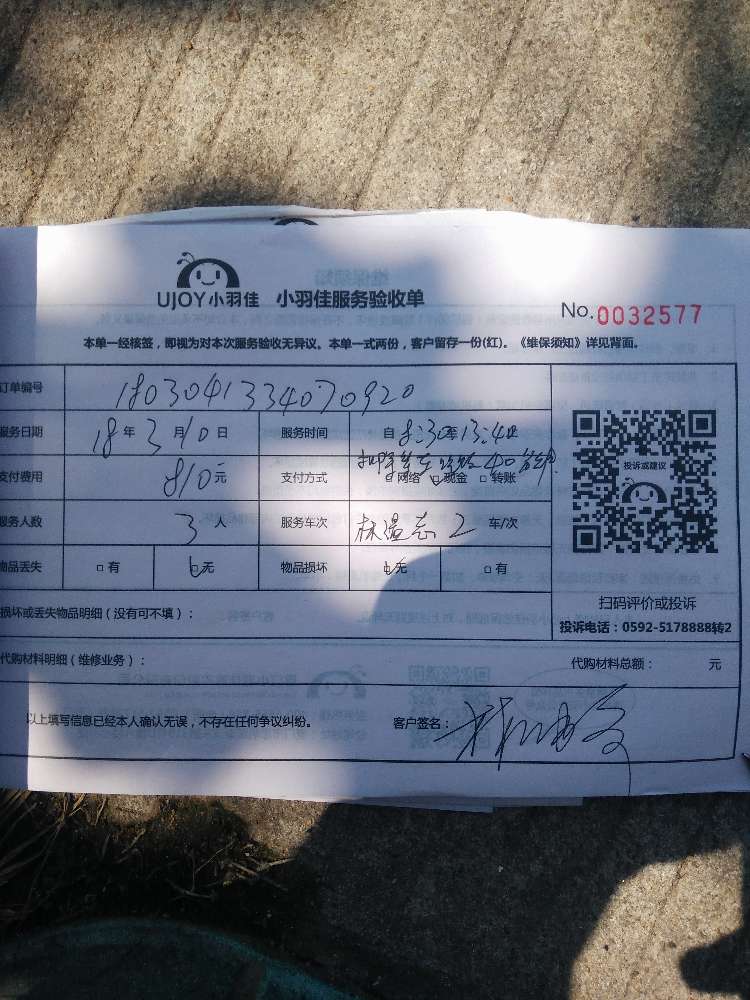 UJOY小羽佳 小羽佳服务验收单
No.0032577
本单一经核签，即视为对本次服务验收无异议。本单一式两份，客户留存一份(红)。《维保须知》详见背面。
订单编号 1803041334070920
服务日期 18年3月10日 服务时间 自8:30至13:40止
支付费用 810元 支付方式 网络 现金 转账
扣除 40分钟
服务人数 3人 服务车次 林温志2车/次
物品丢失 有 无 物品损坏 无 有
投诉或建议
扫码评价或投诉
投诉电话：0592-5178888转2
损坏或丢失物品明细（没有可不填）：
代购材料明细（维修业务）： 代购材料总额： 元
以上填写信息已经本人确认无误，不存在任何争议纠纷。 客户签名：